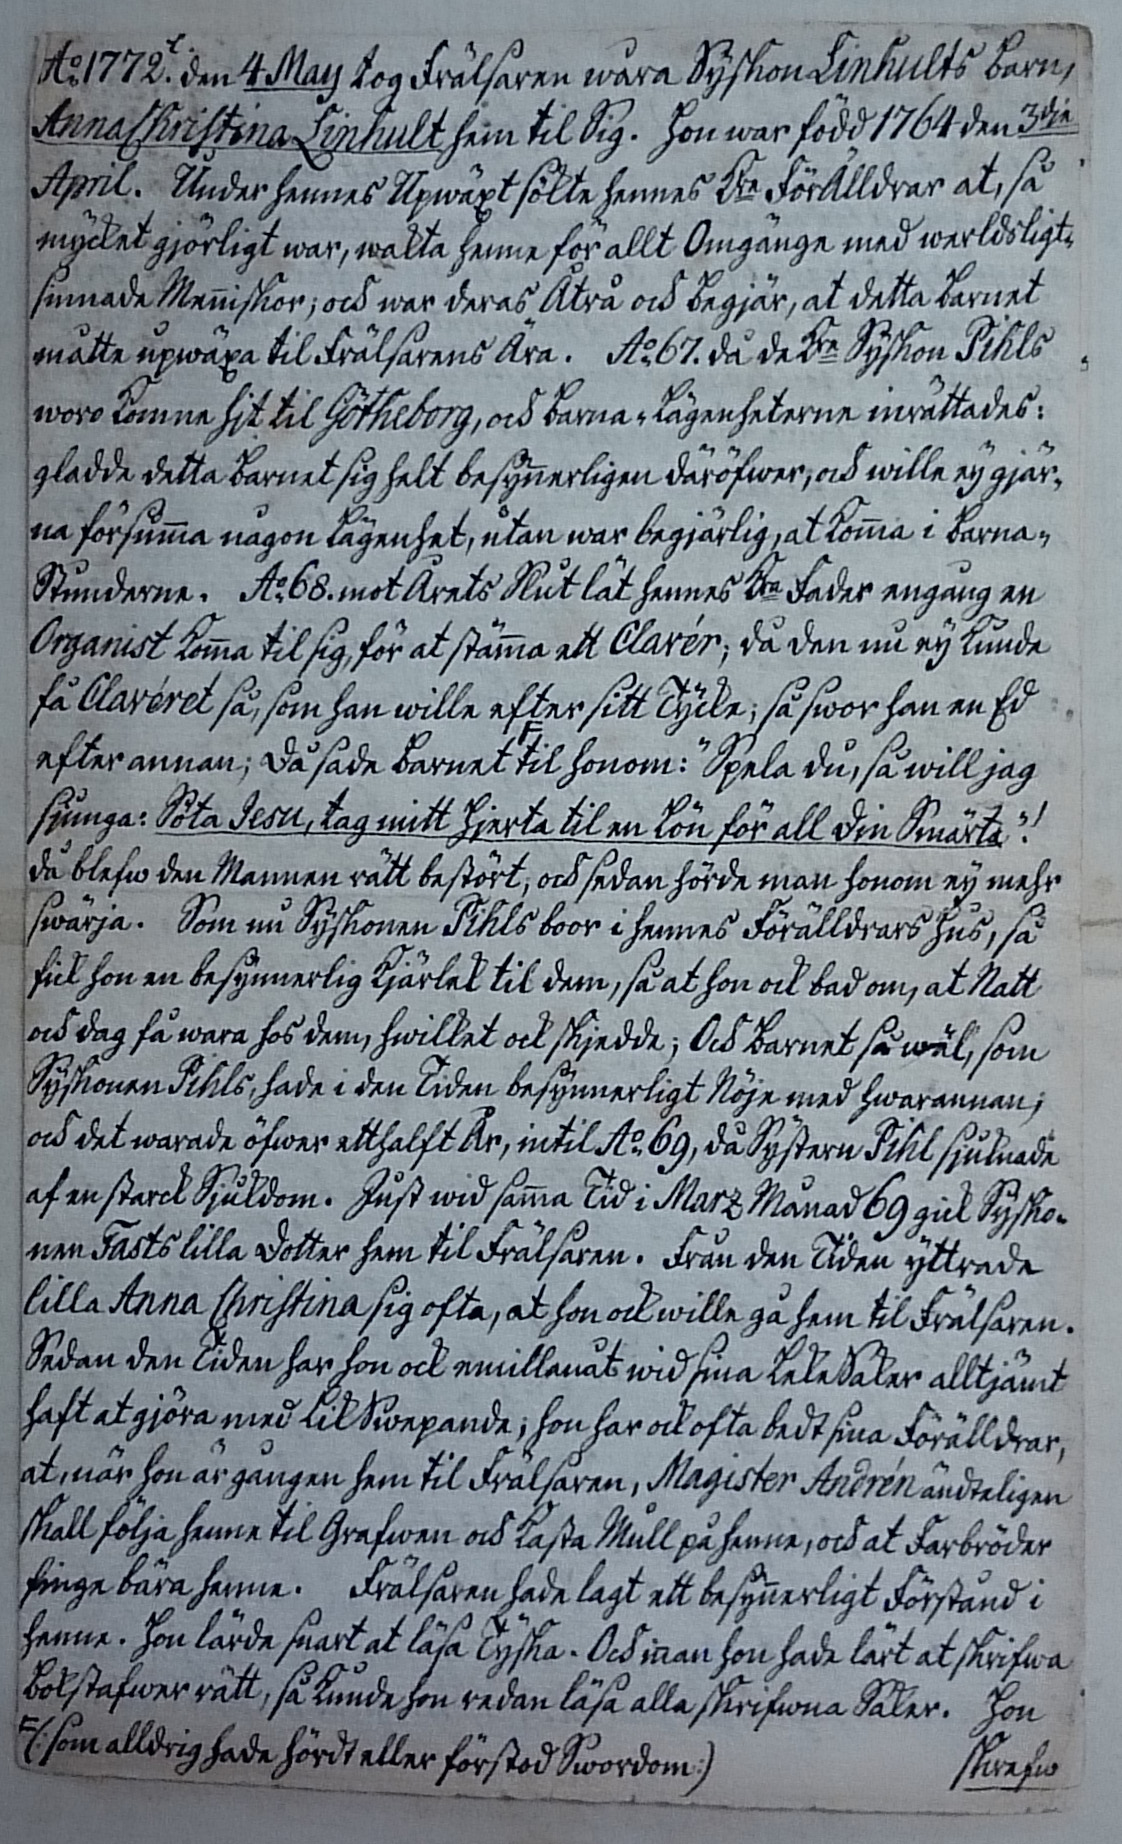 Ao. 1772. den 4 May tog Frälsaren wåra Syskon Linhults Barn,
Anna Christina Linhult hem til Sig. Hon war född 1764 den 3die
April. Under hennes Upwäxt sökte hennes Kre FörÄlldrar at, så
mycket gjörligt war, wakta henne för allt Omgänge med werldsligt-
sinnade Menniskor; och war deras Åtrå och Begjär, at detta Barnet
måtte upwäxa til Frälsarens Ära. Ao. 67. då de Kre Syskon Pihls
woro komne hit til Götheborg, och Barna-Lägenheterne inrättades:
gladde detta Barnet sig helt besynnerligen däröfwer, och wille ey gjär-
na försumma någon Lägenhet, utan war begjärlig, at komma i Barna-
Stunderne. Ao. 68. mot Årets Slut lät hennes Kre Fader engång en
Organist komma til sig, för at stämma ett Clavér; då den nu ey kunde
få Clavéret så, som han wille efter sitt Tycke; så swor han en Ed
efter annan; Då sade Barnet F til honom: "Spela du, så will jag
sjunga: Söta Jesu, tag mitt Hjerta til en Lön för all din Smärta"!
då blefw den Mannen rätt bestört, och sedan hörde man honom ey mehr
swärja. Som nu Syskonen Pihls boor i hennes Förälldrars Hus, så
fick hon en besynnerlig Kjärlek til dem, så at hon ock bad om, at Natt
och dag få wara hos dem, hwilket ock skjedde; Och Barnet så wäl, som
Syskonen Pihls, hade i den Tiden besynnerligt Nöje med hwarannan;
och det warade öfwer ett halft År, intil Ao. 69, då Systern Pihl sjuknade
af en starck Sjukdom. Just wid samma Tid i Marz Månad 69 gick Sysko-
nen Fasts lilla Dotter hem til Frälsaren. Från den Tiden yttrade
lilla Anna Christina sig ofta, at hon ock wille gå hem til Frälsaren.
Sedan den Tiden har hon ock emillanåt wid sina LekeSaker alltjämt
haft at gjöra med Lik Swepande; hon har ock ofta bedt sina Förälldrar,
at, när hon är gången hem til Frälsaren, Magister Andrén ändteligen
skall följa henne til Grafwen och kasta Mull på henne, och at Farbröder
finge bära henne. Frälsaren hade lagt ett besynnerligt Förstånd i
henne. Hon lärde snart at läsa Tyska. Och innan hon hade lärt at skrifwa
Bokstafwer rätt, så kunde hon redan läsa alla skrifwna Saker. Hon
F (: som alldrig hade hördt eller förstod Swordom :)
skrefw